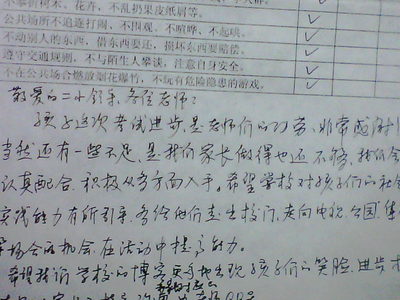 不攀折树木、花卉，不乱扔果皮纸屑等。 ✓
公共场所不追逐打闹、不围观、不喧哗、不起哄。 ✓
不动别人的东西，借东西要还，损坏东西要赔偿。 ✓
遵守交通规则，不与陌生人攀谈，注意自身安全。 ✓
不在公共场合燃放烟花爆竹，不玩有危险隐患的游戏。 ✓
敬爱的二小领导、各位老师：
孩子这次考试进步是老师们的功劳、非常感谢！
当然还有一些不足，是我们家长做得也还不够，我们会
认真配合、积极从多方面入手。希望学校对孩子们的社会
实践能力有所引导，多给他们走出校门、走向电视、公园、集
会的机会，在活动中提高能力。
希望我们学校的博客更多地出现孩子们的笑脸、进步